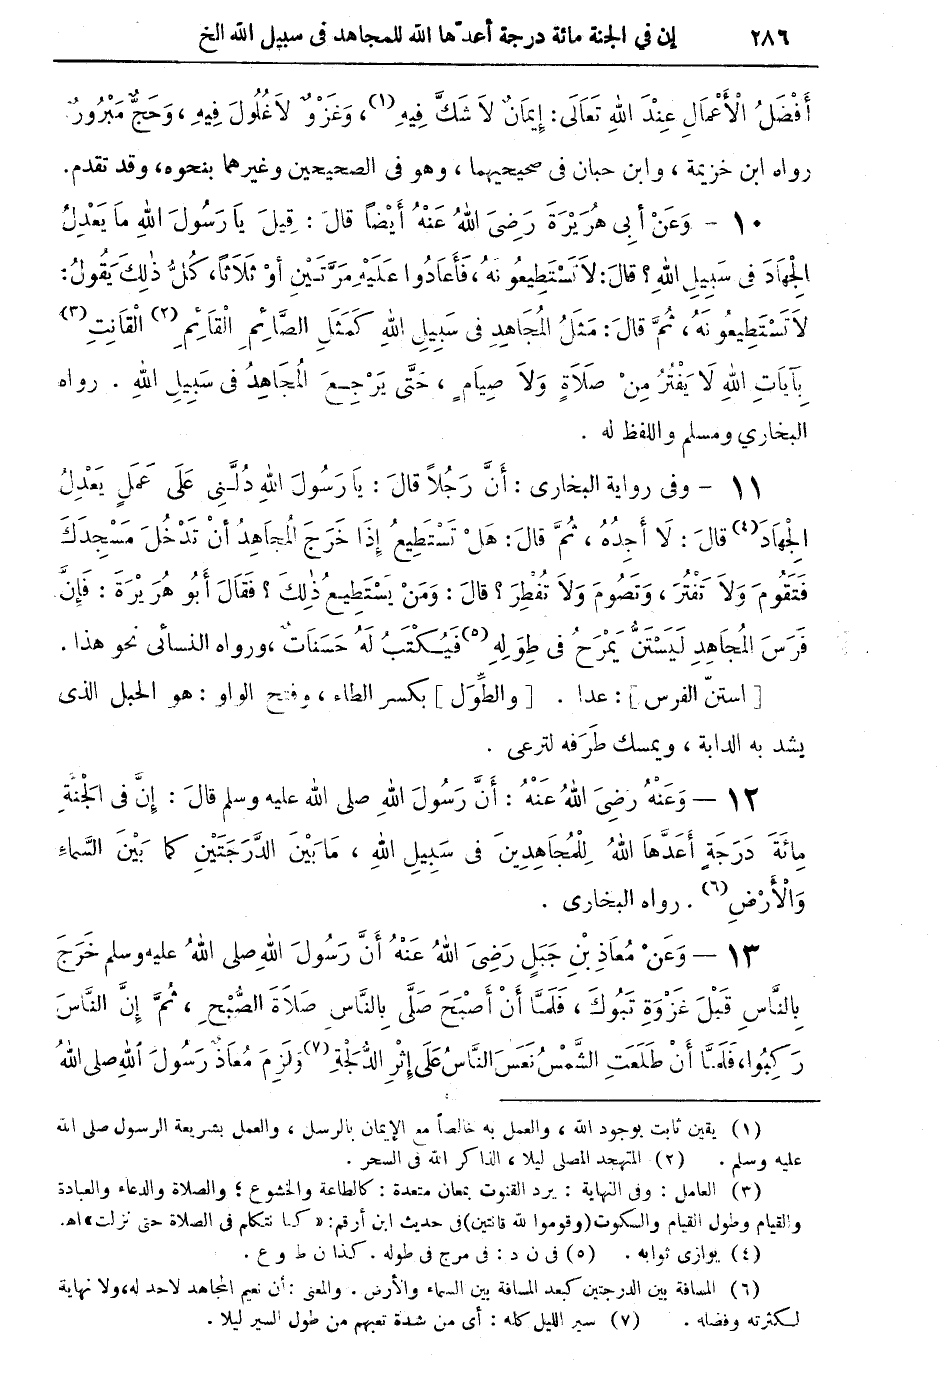 ٢٨٦ إن في الجنة مائة درجة أعدّها الله للمجاهد فى سبيل الله الخ
أَفْضَلُ الْأَعْمَالِ عِنْدَ اللهِ تَعَالَى: إِيمَانٌ لاَ شَكَّ فِيهِ (١)، وَغَزْوٌ لاَ غُلُولَ فِيهِ، وَحَجٌّ مَبْرُورٌ.
رواه ابن خزيمة، وابن حبان فى صحيحيهما، وهو فى الصحيحين وغيرهما بنحوه، وقد تقدم.
١٠ - وَعَنْ أَبِى هُرَيْرَةَ رَضِىَ اللهُ عَنْهُ أَيْضاً قَالَ: قِيلَ يَا رَسُولَ اللهِ مَا يَعْدِلُ
الْجِهَادَ فى سَبِيلِ اللهِ؟ قَالَ: لاَ تَسْتَطِيعُونَهُ، فَأَعَادُوا عَلَيْهِ مَرَّتَيْنِ أَوْ ثَلَاثاً، كُلُّ ذٰلِكَ يَقُولُ:
لاَ تَسْتَطِيعُونَهُ، ثُمَّ قَالَ: مَثَلُ الْمُجَاهِدِ فى سَبِيلِ اللهِ كَمَثَلِ الصَّائِمِ الْقَائِمِ (٢) الْقَانِتِ (٣)
بِآيَاتِ اللهِ لَا يَفْتُرُ مِنْ صَلَاةٍ وَلاَ صِيَامٍ، حَتَّى يَرْجِعَ الْمُجَاهِدُ فى سَبِيلِ اللهِ. رواه
البخاري ومسلم واللفظ له.
١١ - وفى رواية البخارى: أَنَّ رَجُلاً قَالَ: يَا رَسُولَ اللهِ دُلَّنِى عَلَى عَمَلٍ يَعْدِلُ
الْجِهَادَ (٤) قَالَ: لَا أَجِدُهُ، ثُمَّ قَالَ: هَلْ تَسْتَطِيعُ إِذَا خَرَجَ الْمُجَاهِدُ أَنْ تَدْخُلَ مَسْجِدَكَ
فَتَقُومَ وَلاَ تَفْتُرَ، وَتَصُومَ وَلاَ تُفْطِرَ؟ قَالَ: وَمَنْ يَسْتَطِيعُ ذٰلِكَ؟ فَقَالَ أَبُو هُرَيْرَةَ: فَإِنَّ
فَرَسَ الْمُجَاهِدِ لَيَسْتَنُّ يَمْرَحُ فى طِوَلِهِ (٥) فَيُكْتَبُ لَهُ حَسَنَاتٌ، ورواه النسائى نحو هذا.
[استنّ الفرس]: عدا. [والطِّوَل] بكسر الطاء، وفتح الواو: هو الحبل الذى
يشد به الدابة، ويمسك طَرَفه لترعى.
١٢ — وَعَنْهُ رَضِىَ اللهُ عَنْهُ: أَنَّ رَسُولَ اللهِ صلى الله عليه وسلم قَالَ: إِنَّ فى الْجَنَّةِ
مِائَةَ دَرَجَةٍ أَعَدَّهَا اللهُ لِلْمُجَاهِدِينَ فى سَبِيلِ اللهِ، مَا بَيْنَ الدَّرَجَتَيْنِ كَمَا بَيْنَ السَّمَاءِ
وَالْأَرْضِ (٦). رواه البخارى.
١٣ — وَعَنْ مُعَاذِ بْنِ جَبَلٍ رَضِىَ اللهُ عَنْهُ أَنَّ رَسُولَ اللهِ صلى اللهُ عليه وسلم خَرَجَ
بِالنَّاسِ قَبْلَ غَزْوَةِ تَبُوكَ، فَلَمَّا أَنْ أَصْبَحَ صَلَّى بِالنَّاسِ صَلَاةَ الصُّبْحِ، ثُمَّ إِنَّ النَّاسَ
رَكِبُوا، فَلَمَّا أَنْ طَلَعَتِ الشَّمْسُ نَعَسَ النَّاسُ عَلَى إِثْرِ الدُّلْجَةِ (٧) وَلَزِمَ مُعَاذٌ رَسُولَ اللهِ صلى اللهُ
(١) يقين ثابت بوجود الله، والعمل به خالصاً مع الإيمان بالرسل، والعمل بشريعة الرسول صلى الله
عليه وسلم. (٢) المتهجد المصلى ليلا، الذاكر الله فى السحر.
(٣) العامل: وفى النهاية: يرد القنوت بمعان متعددة: كالطاعة والخشوع؛ والصلاة والدعاء والعبادة
والقيام وطول القيام والسكوت (وقوموا لله قانتين) فى حديث ابن أرقم: «كنا نتكلم فى الصلاة حتى نزلت» اهـ.
(٤) يوازى ثوابه. (٥) فى ن د: فى مرج فى طوله. كذا ن ط و ع.
(٦) المسافة بين الدرجتين كبعد المسافة بين السماء والأرض. والمعنى: أن نعيم المجاهد لاحد له، ولا نهاية
لكثرته وفضله. (٧) سير الليل كله: أى من شدة تعبهم من طول السير ليلا.